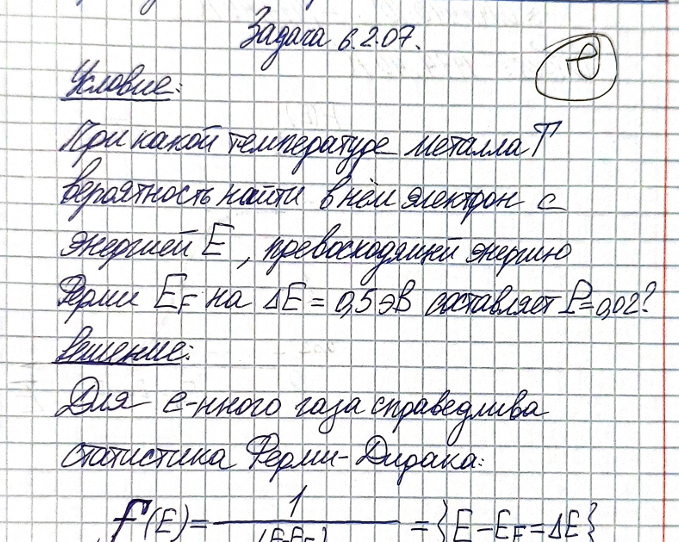 Задача 6.2.07.
Условие:
При какой температуре металла T
вероятность найти в нём электрон с
энергией E, превосходящей энергию
Ферми E_F на ΔE = 0,5 эВ составляет P=0,02?
Решение:
Для е-нного газа справедлива
статистика Ферми-Дирака:
f(E) = 1 / (E-E_F) = {E-E_F=ΔE}